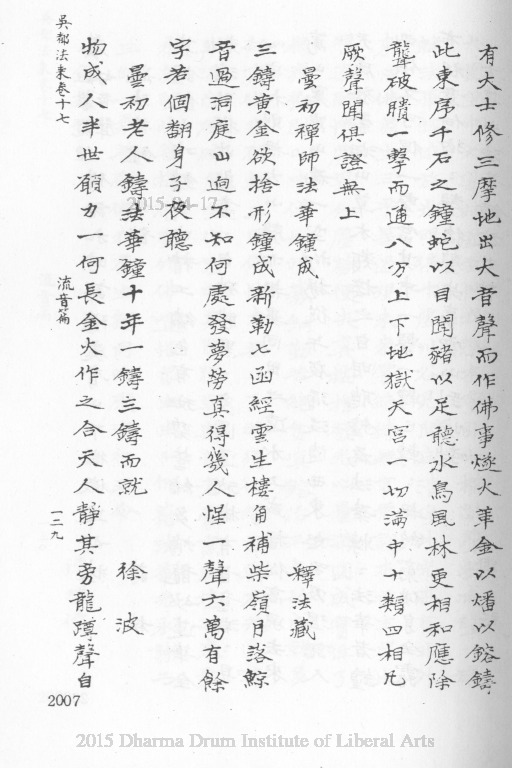 有大士修三摩地出大音聲而作佛事燧火革金以燔以鎔鑄
此東序千石之鐘蛇以目聞豬以足聽水鳥風林更相和應除
聾破聵一擊而通八万上下地獄天宮一切滿中十類四相凡
厥聲聞俱證無上
曇初禪師法華鐘成
釋法藏
三鑄黄金欲捨形鐘成新勒七函經雲生樓角補柴嶺月落鯨
音過洞庭山迥不知何處發夢勞真得幾人惺聲六萬有餘
字若個翻身子夜聽
曇初老人鑄法華鐘十年一鑄三鑄而就
徐波
物成人半世願力一何長金火作之合天人靜其旁龍蹲聲自
吳都法乘卷十七
流音篇
一二九
2007
2015-04-17
2015 Dharma Drum Institute of Liberal Arts